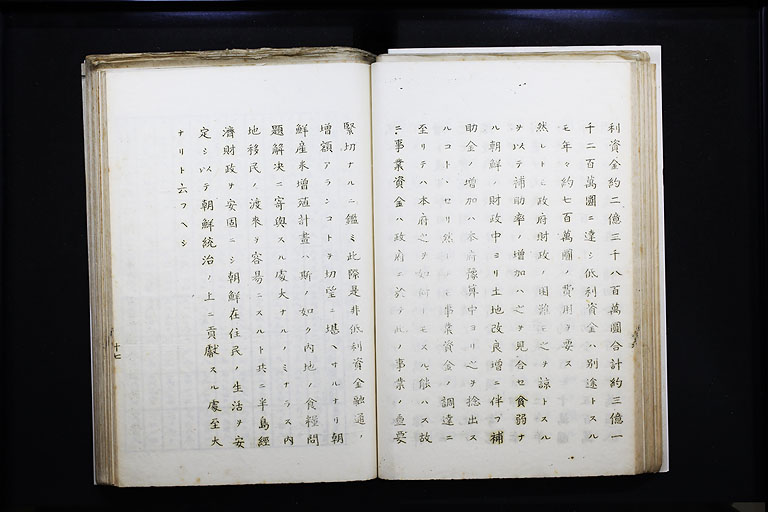 利資金約二億三千八百萬圓合計約三億一
千二百萬圓ニ達シ低利資金ハ別途トスル
モ年々約七百萬圓ノ費用ヲ要ス
然レトモ政府財政ノ困難ハ之ヲ諒トスル
ヲ以テ補助率ノ増加ハ之ヲ見合セ貧弱ナ
ル朝鮮ノ財政中ヨリ土地改良増ニ伴フ補
助金ノ増加ハ本府豫算中ヨリ之ヲ捻出ス
ルコトヽセリ然レトモ事業資金ノ調達ニ
至リテハ本府之ヲ如何トモスル能ハス故
ニ事業資金ハ政府ニ於テ此ノ事業ノ重要
緊切ナルニ鑑ミ此際是非低利資金融通ノ
増額アランコトヲ切望ニ堪ヘサルナリ朝
鮮産米増殖計畫ハ斯ノ如ク内地ノ食糧問
題解決ニ寄與スル處大ナルノミナラス内
地移民ノ渡来ヲ容易ニスルト共ニ半島經
濟財政ヲ安固ニシ朝鮮在住民ノ生活ヲ安
定シ以テ朝鮮統治ノ上ニ貢獻スル處至大
ナリト云フヘシ
十七